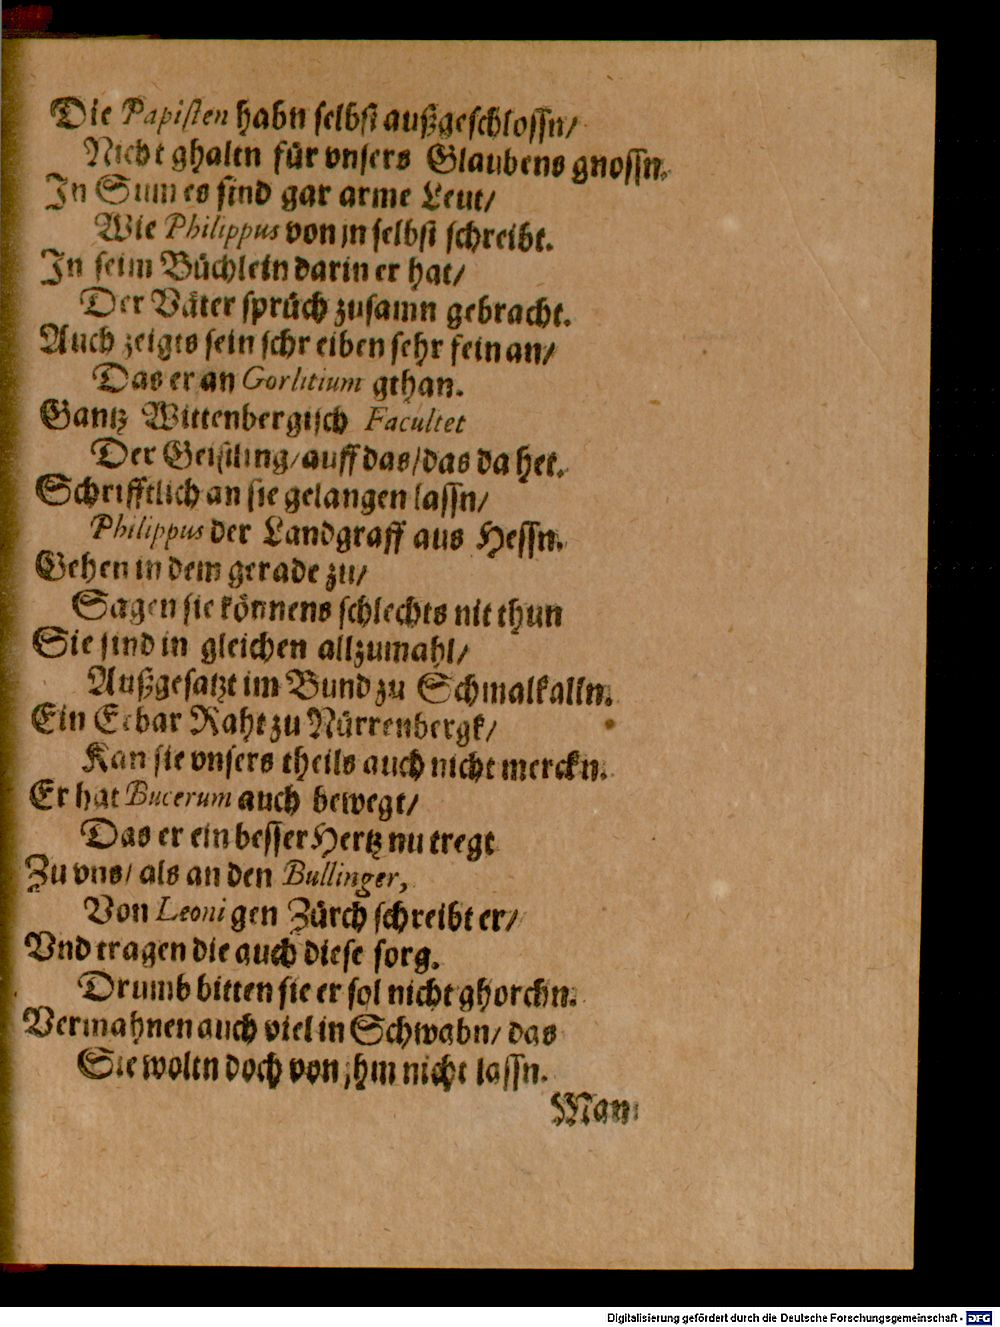 Die Papisten habn selbst außgeschlossn/
Nicht ghaltn für vnsers Glaubens gnossn.
In Sum es sind gar arme Leut/
Wie Philippus von jn selbst schreibt.
In seim Büchlein darin er hat/
Der Väter sprüch zusamn gebracht.
Auch zeigts sein schreiben sehr fein an/
Das er an Gorlitium gthan.
Gantz Wittenbergisch Facultet
Der Geistling/auff das/das da het.
Schrifftlich an sie gelangen lassn/
Philippus der Landgraff aus Hessn.
Gehen in dem gerade zu/
Sagen sie könnens schlechts nit thun
Sie sind in gleichen allzumahl/
Außgesatzt im Bund zu Schmalkalln.
Ein Erbar Raht zu Nürrenbergk/
Kan sie vnsers theils auch nicht merckn.
Er hat Bucerum auch bewegt/
Das er ein besser Hertz nu tregt
Zu vns/ als an den Bullinger,
Von Leoni gen Zürch schreibt er/
Vnd tragen die auch diese sorg.
Drumb bitten sie er sol nicht ghorchn.
Vermahnen auch viel in Schwabn/ das
Sie woltn doch von jhm nicht lassn.
Man
Digitalisierung gefördert durch die Deutsche Forschungsgemeinschaft - DFG